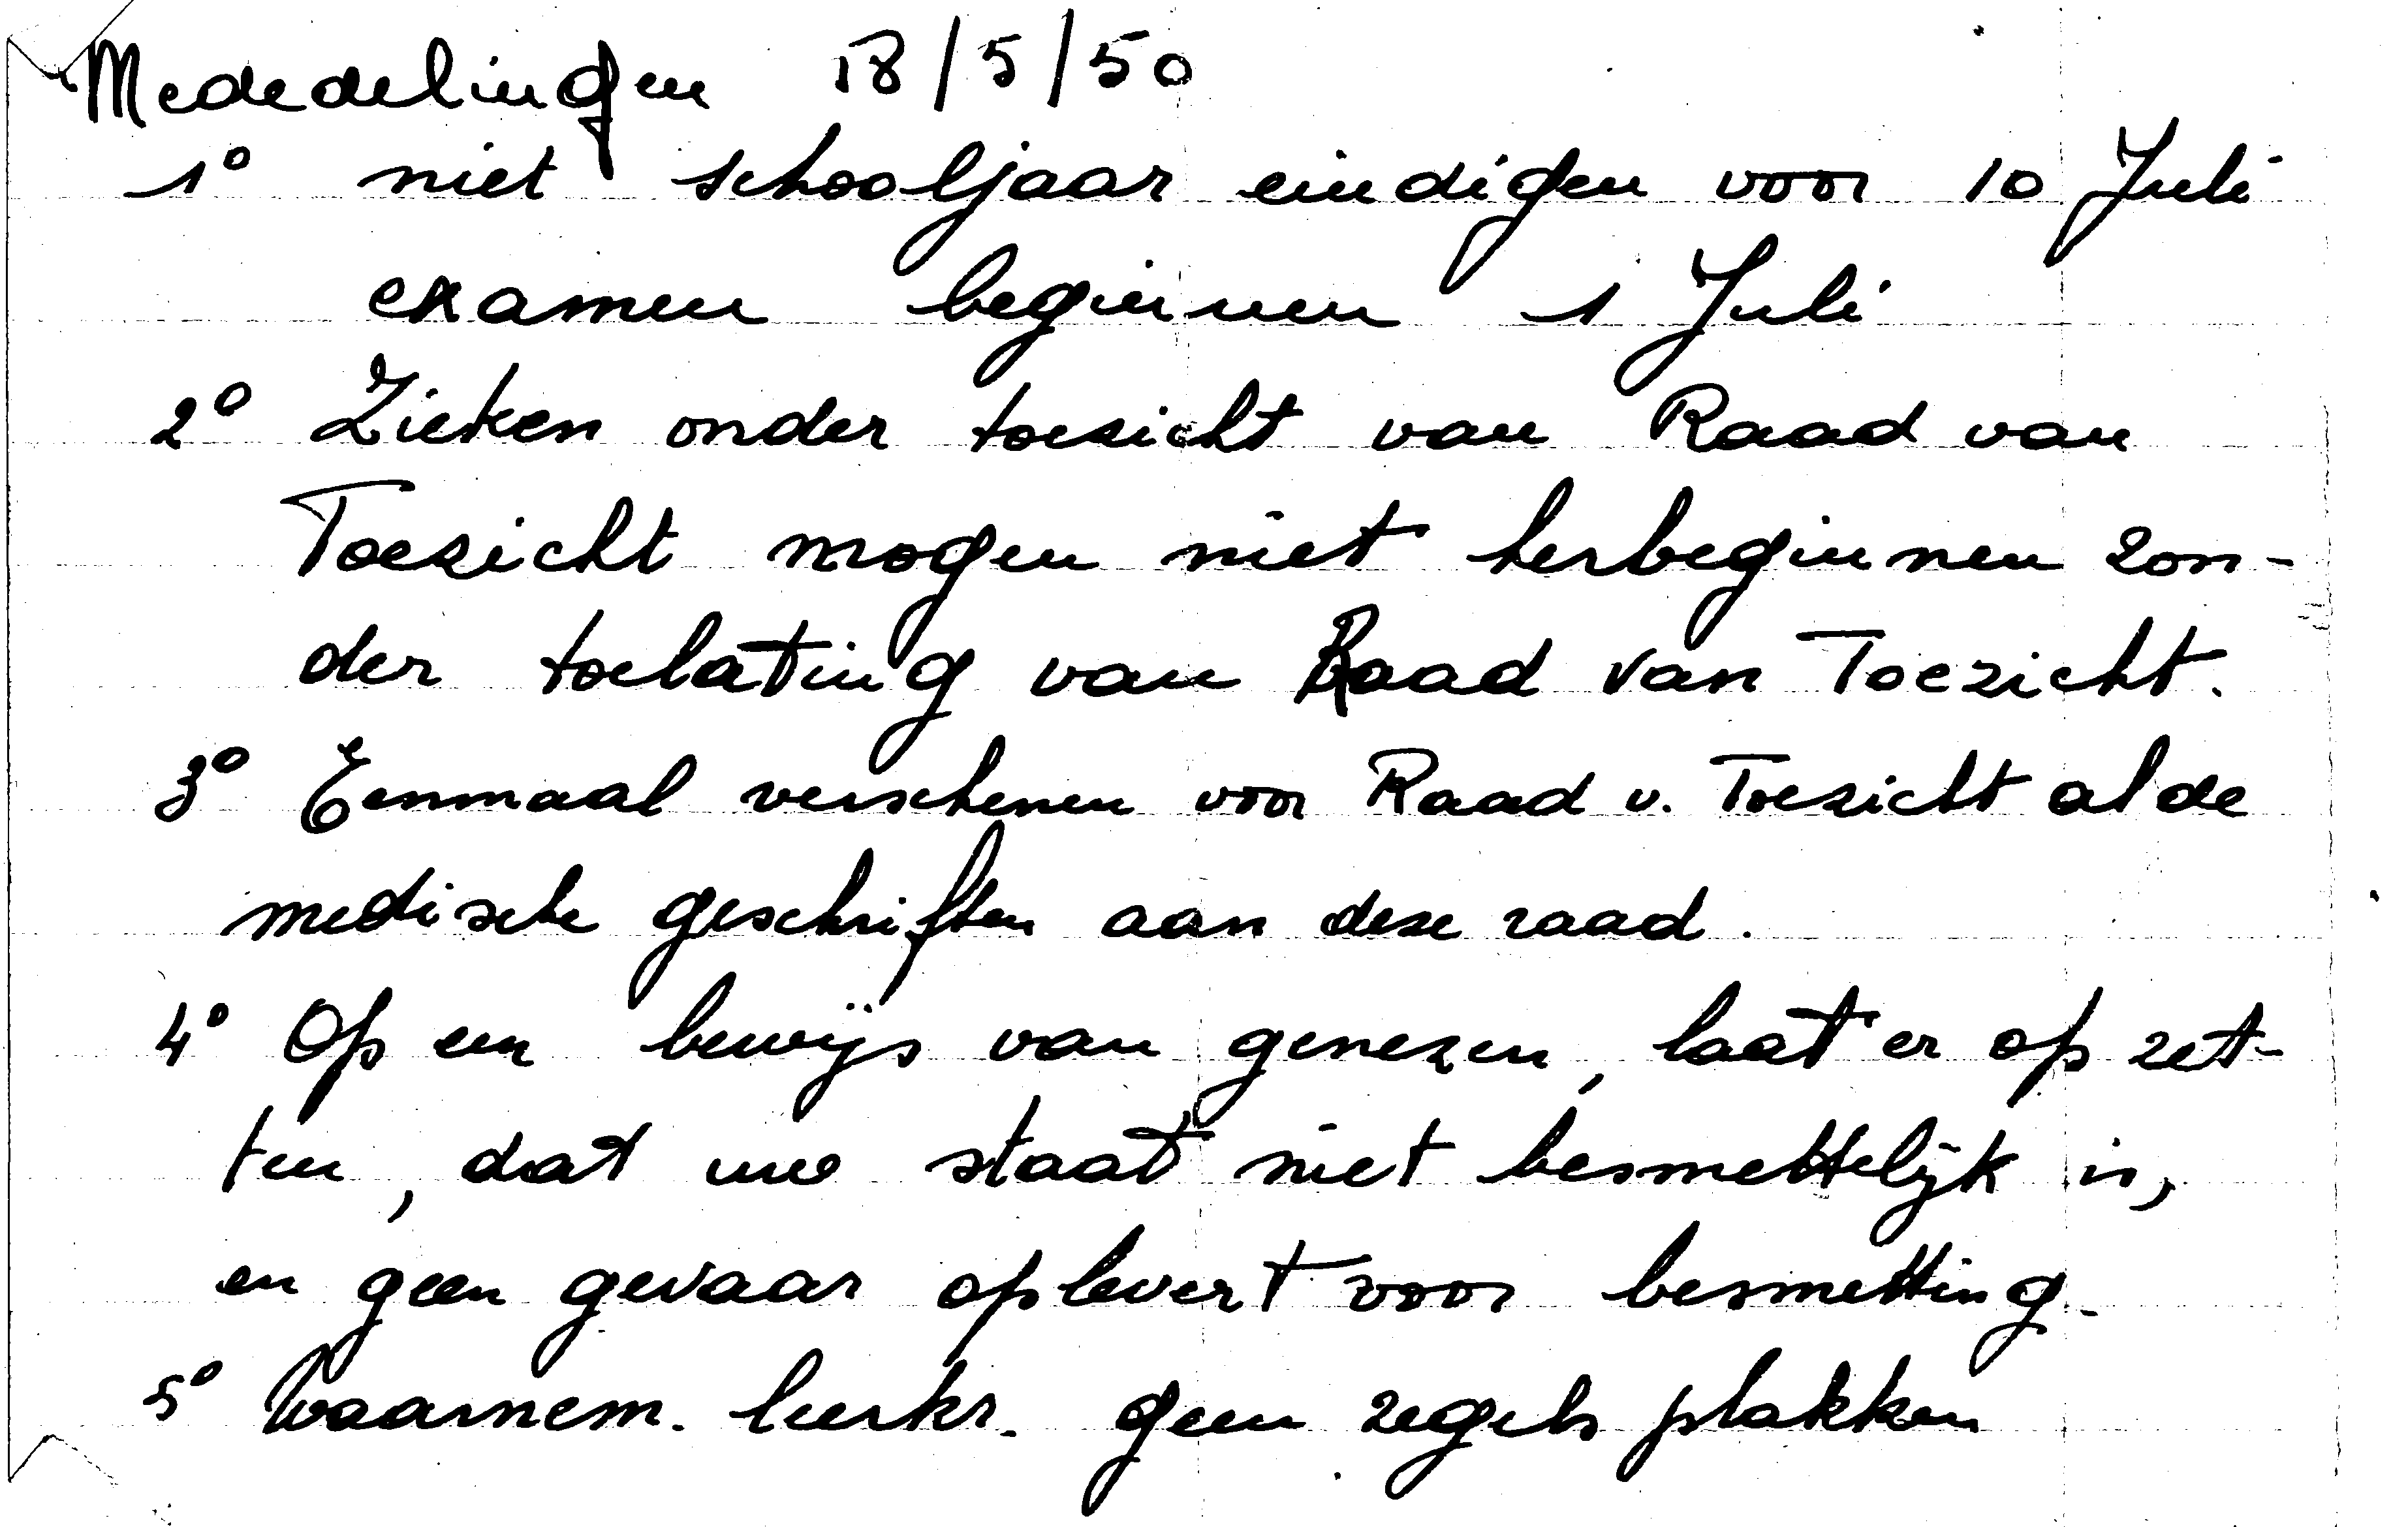 Mededelingen 18/5/50
1° niet schooljaar eindigen voor 10 Juli
examen beginnen 1 Juli
2° Zieken onder toezicht van Raad van
Toezicht mogen niet herbeginnen zon-
der toelating van Raad van Toezicht.
3° Eenmaal verschenen voor Raad v. Toezicht al de
medische geschriften aan deze raad.
4° Op een bewijs van genezen, laat er op zet-
ten, dat uw staat niet besmettelijk is,
en geen gevaar oplevert voor besmetting.
5° Waarnem. leerkr. geen zegels plakken